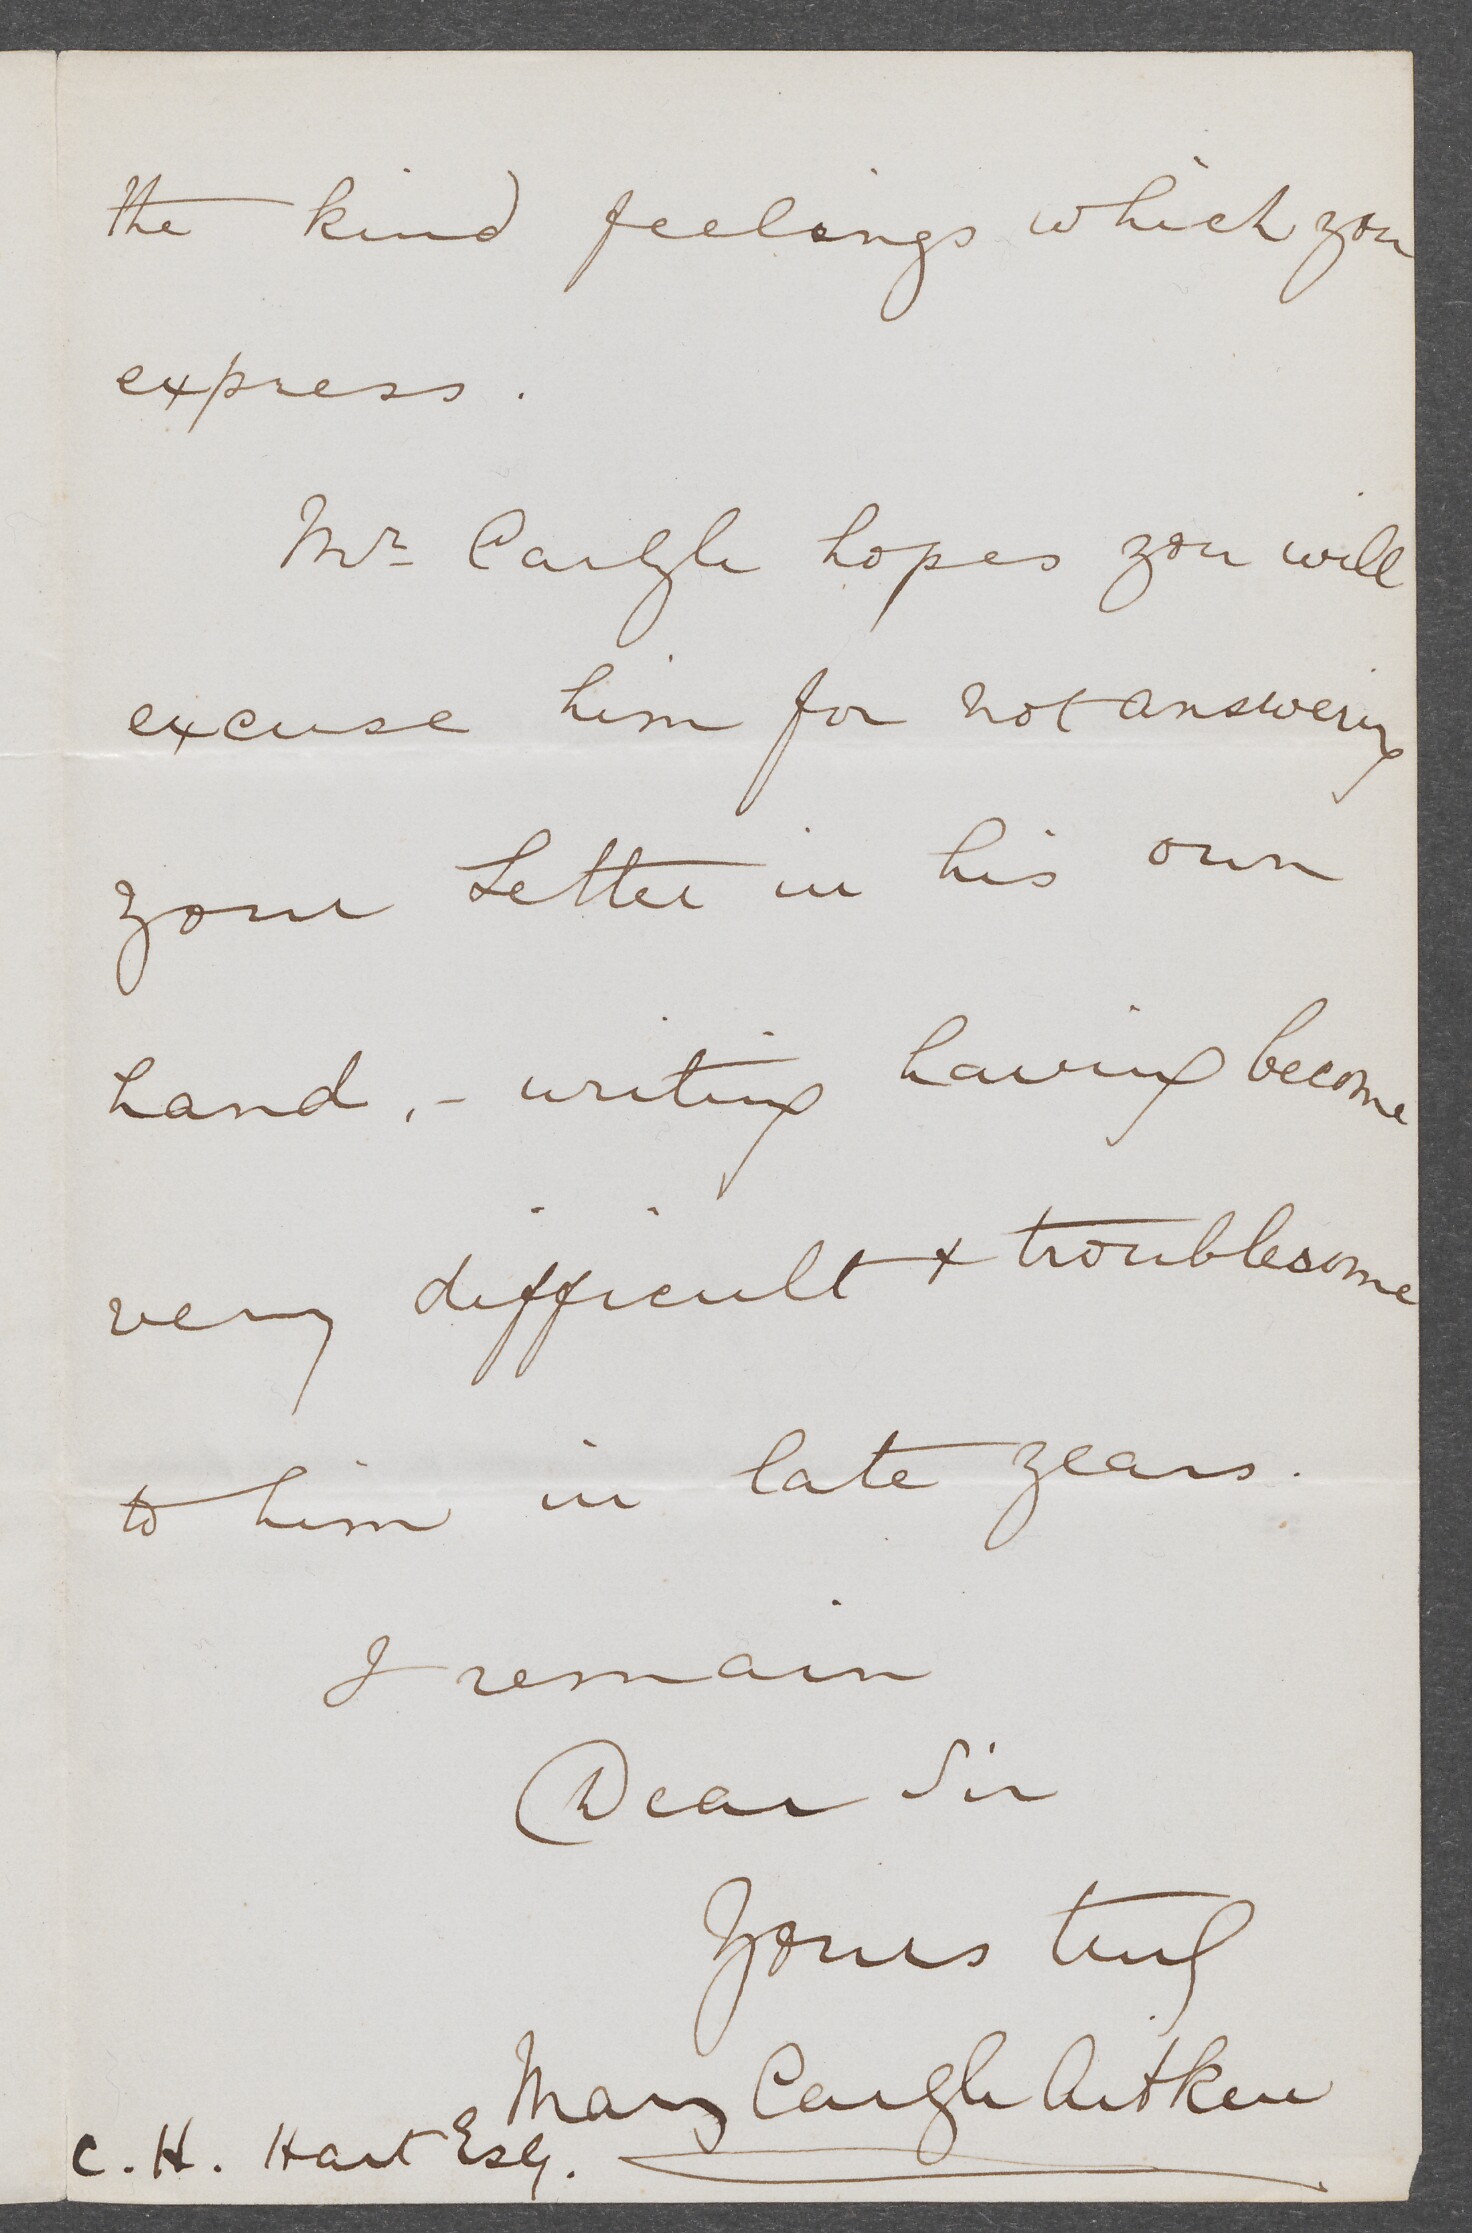 the kind feelings which you
express.
Mr. Carlyle hopes you will
excuse him for not answering
your Letter in his own
hand, - writing having become
very difficult & troublesome
to him in late years.
I remain
Dear Sir
Yours truly
Mary Carlyle Aitken
C. H. Hart Esq.